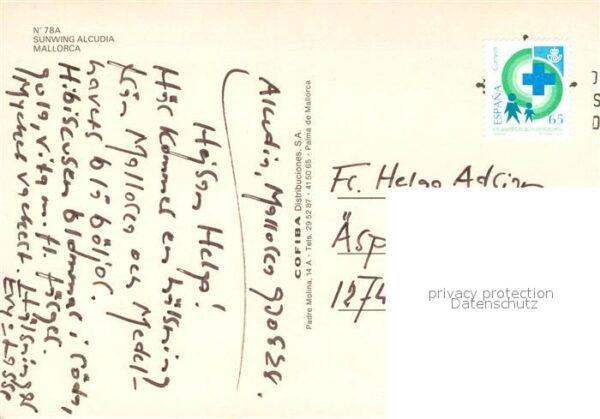 N° 78A
SUNWING ALCUDIA
MALLORCA
Alcudia, Mallorca 920528.
Hejsan Helga!
Här kommer en hälsning
från Mallorca och Medel-
havets blå böljor.
Hibiscusen blommar i röda,
gula, vita m. fl. färger.
Mycket vackert. Hälsningar
COFIBA Distribuciones, S.A.
Padre Molina, 14 A - Tels. 29 52 87 - 41 50 65 - Palma de Mallorca
Correos
ESPAÑA
65
Fr. Helga
Äsp
1274
privacy protection
Datenschutz